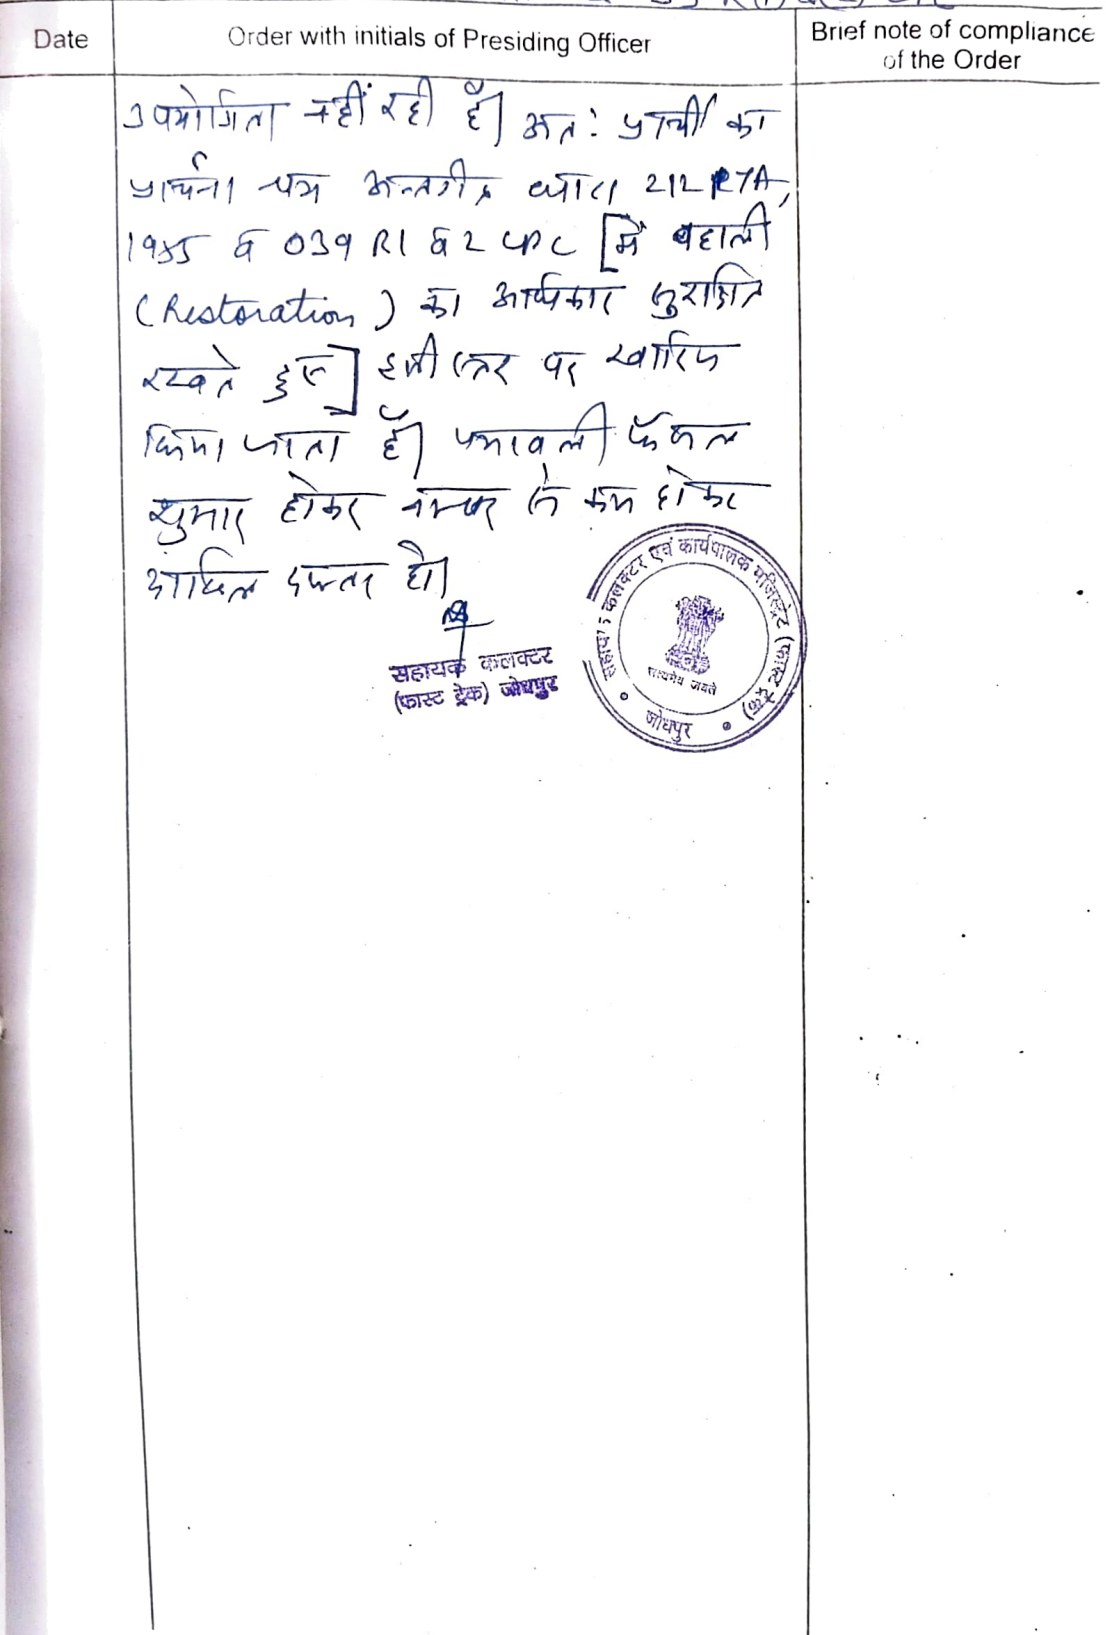 Date
Order with initials of Presiding Officer
Brief note of compliance
of the Order
उपयोगिता नहीं रही है। अतः प्रार्थी का
प्रार्थना पत्र अन्तर्गत धारा 212 RTA,
1955 & O39 R1 & 2 CPC [में बहाली
(Restoration) का अधिकार सुरक्षित
रखते हुए] इसी स्तर पर खारिज
किया जाता है। पत्रावली फैसल
शुमार होकर नम्बर से कम होकर
दाखिल दफ्तर हो।
सहायक कलक्टर
(फास्ट ट्रेक) जोधपुर
सहायक कलक्टर एवं कार्यपालक मजिस्ट्रेट (फास्ट ट्रेक)
सत्यमेव जयते
जोधपुर